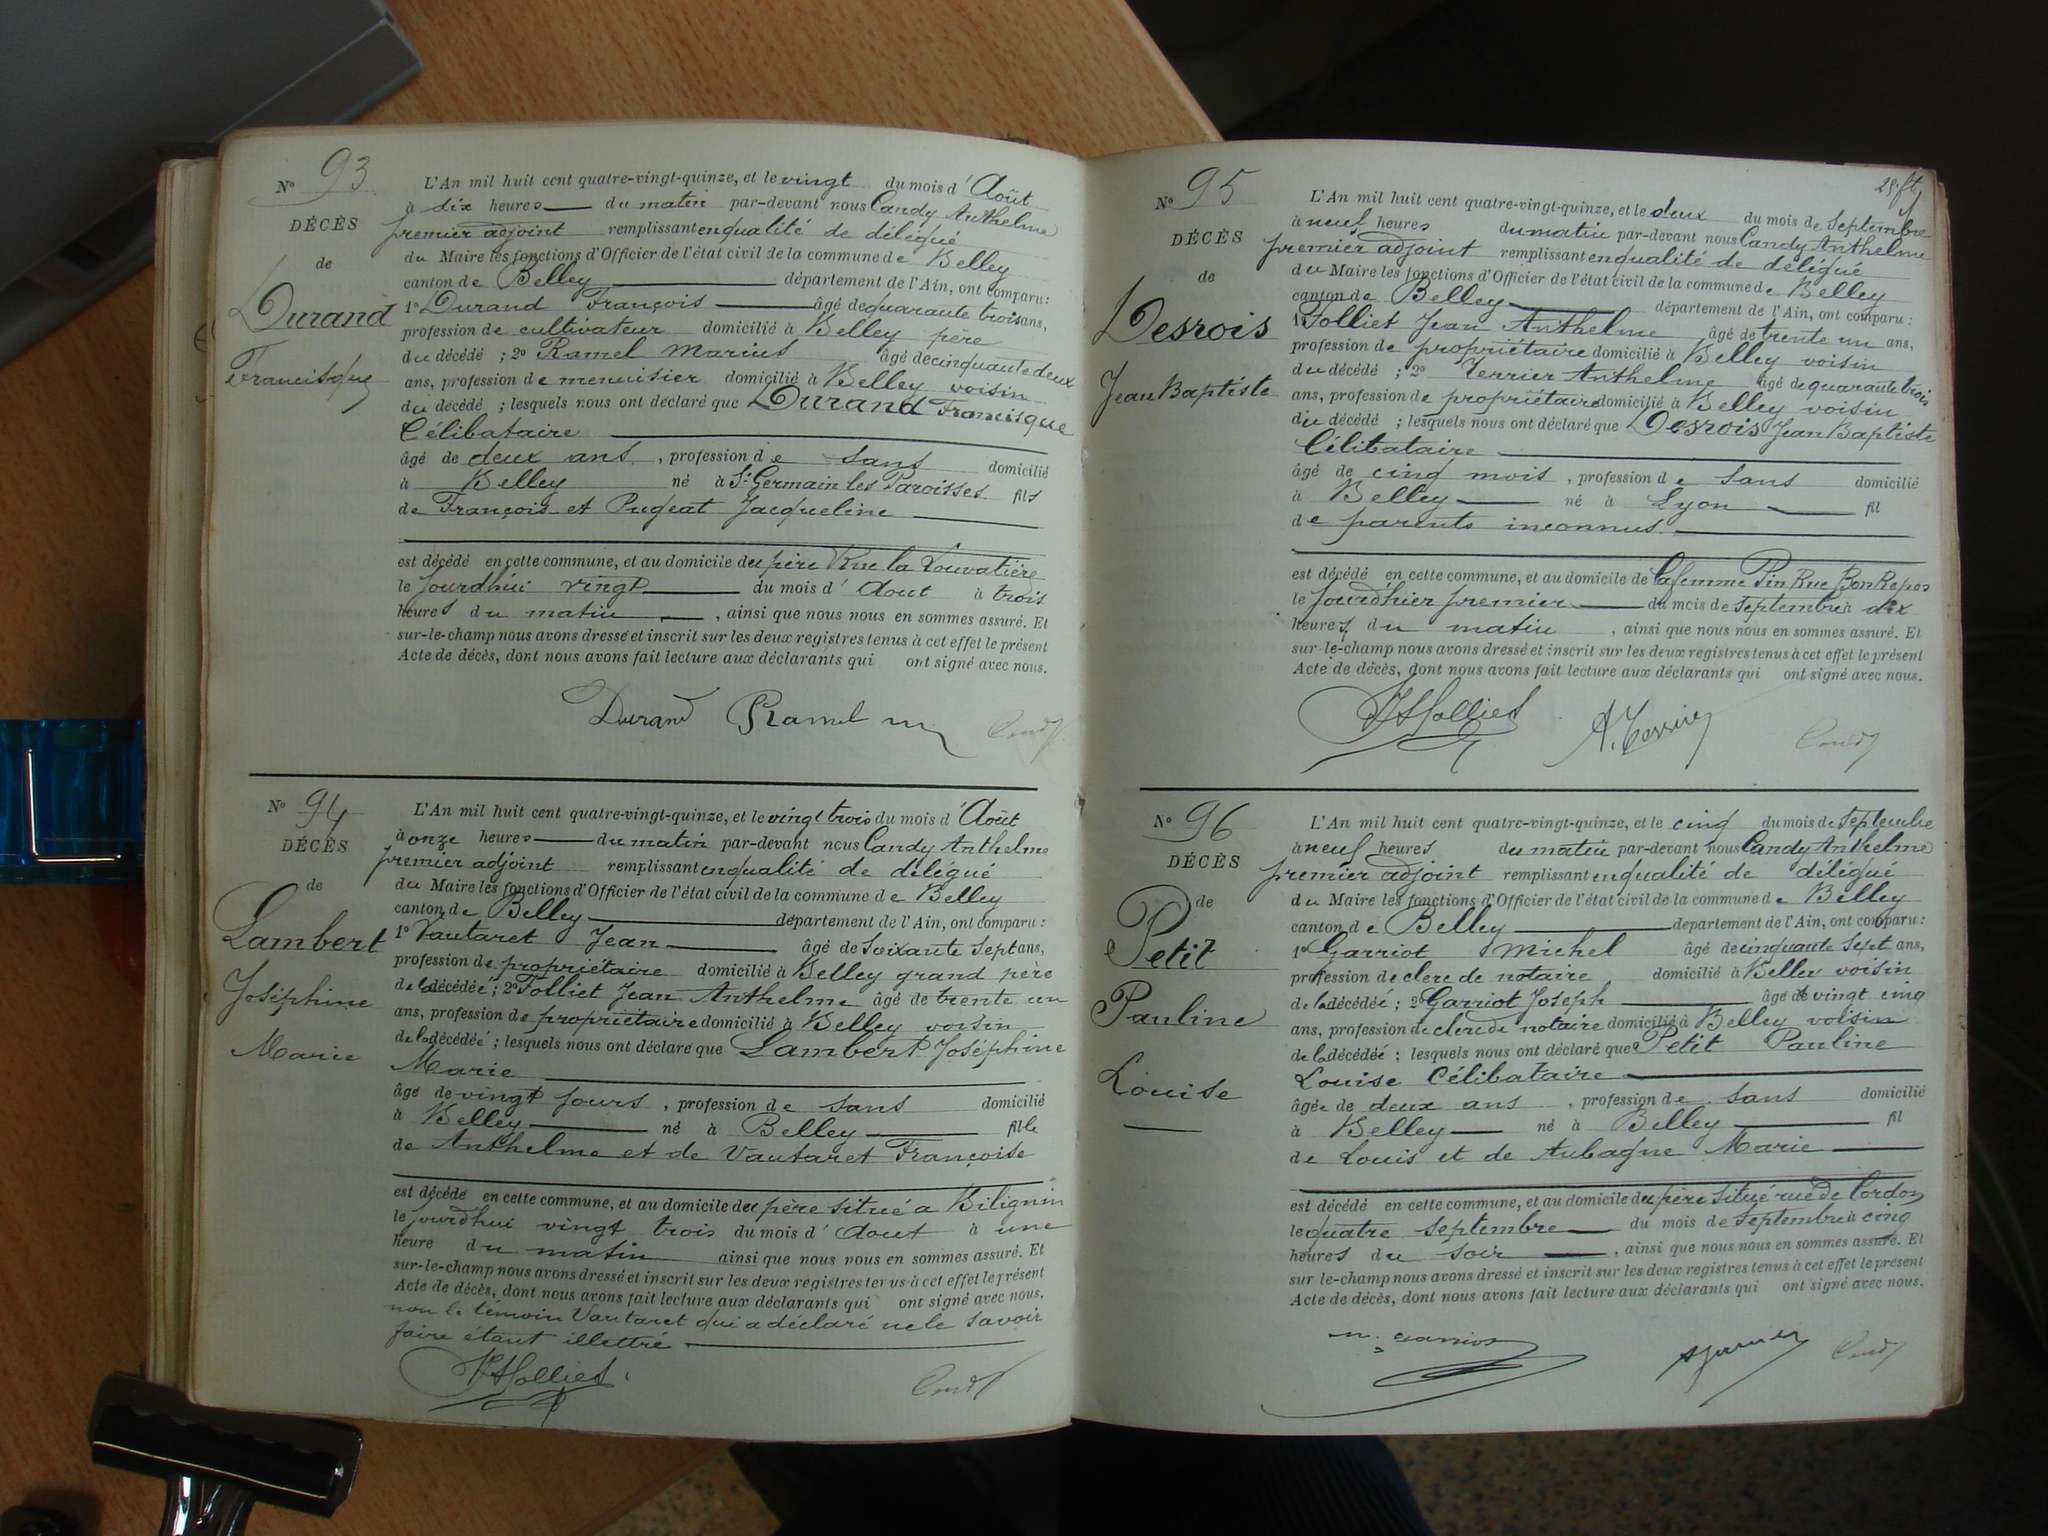 N° 93
DÉCÈS
de
Durand
Francisque
L'An mil huit cent quatre-vingt-quinze, et le vingt du mois d'Août
à dix heures du matin par-devant nous Candy Anthelme
premier adjoint remplissant en qualité de délégué
du Maire les fonctions d'Officier de l'état civil de la commune de Belley
canton de Belley département de l'Ain, ont comparu :
1° Durand François âgé de quarante trois ans,
profession de cultivateur domicilié à Belley père
du décédé ; 2° Ramel Marius âgé de cinquante deux
ans, profession de menuisier domicilié à Belley voisin
du décédé ; lesquels nous ont déclaré que Durand Francisque
Célibataire
âgé de deux ans, profession de sans domicilié
à Belley né à St Germain les Paroisses fils
de François et Pugeat Jacqueline
est décédé en cette commune, et au domicile du père Rue la Louvatière
le jourdhui vingt du mois d'Aout à trois
heures du matin, ainsi que nous nous en sommes assuré. Et
sur-le-champ nous avons dressé et inscrit sur les deux registres tenus à cet effet le présent
Acte de décès, dont nous avons fait lecture aux déclarants qui ont signé avec nous.
Durand Ramel m Candy
N° 94
DÉCÈS
de
Lambert
Joséphine
Marie
L'An mil huit cent quatre-vingt-quinze, et le vingt trois du mois d'Août
à onze heures du matin par-devant nous Candy Anthelme
premier adjoint remplissant en qualité de délégué
du Maire les fonctions d'Officier de l'état civil de la commune de Belley
canton de Belley département de l'Ain, ont comparu :
1° Vautaret Jean âgé de soixante sept ans,
profession de propriétaire domicilié à Belley grand père
de la décédée ; 2° Folliet Jean Anthelme âgé de trente un
ans, profession de propriétaire domicilié à Belley voisin
de la décédée ; lesquels nous ont déclaré que Lambert Joséphine
Marie
âgé de vingt jours, profession de sans domicilié
à Belley né à Belley fille
de Anthelme et de Vautaret Françoise
est décédé en cette commune, et au domicile du père situé à Bilignin
le jourdhui vingt trois du mois d'Aout à une
heure du matin ainsi que nous nous en sommes assuré. Et
sur-le-champ nous avons dressé et inscrit sur les deux registres tenus à cet effet le présent
Acte de décès, dont nous avons fait lecture aux déclarants qui ont signé avec nous.
non le témoin Vautaret qui a déclaré ne le savoir
faire étant illettré
Folliet Candy
N° 95
DÉCÈS
de
Desrois
Jean Baptiste
L'An mil huit cent quatre-vingt-quinze, et le deux du mois de Septembre
à neuf heures du matin par-devant nous Candy Anthelme
premier adjoint remplissant en qualité de délégué
du Maire les fonctions d'Officier de l'état civil de la commune de Belley
canton de Belley département de l'Ain, ont comparu :
1° Folliet Jean Anthelme âgé de trente un ans,
profession de propriétaire domicilié à Belley voisin
du décédé ; 2° Terrier Anthelme âgé de quarante trois
ans, profession de propriétaire domicilié à Belley voisin
du décédé ; lesquels nous ont déclaré que Desrois Jean Baptiste
Célibataire
âgé de cinq mois, profession de sans domicilié
à Belley né à Lyon fil
de parents inconnus
est décédé en cette commune, et au domicile de la femme Pin Rue Bon Repos
le jourdhier premier du mois de Septembre à dix
heures du matin, ainsi que nous nous en sommes assuré. Et
sur-le-champ nous avons dressé et inscrit sur les deux registres tenus à cet effet le présent
Acte de décès, dont nous avons fait lecture aux déclarants qui ont signé avec nous.
Folliet A. Terrier Candy
N° 96
DÉCÈS
de
Petit
Pauline
Louise
L'An mil huit cent quatre-vingt-quinze, et le cinq du mois de Septembre
à neuf heures du matin par-devant nous Candy Anthelme
premier adjoint remplissant en qualité de délégué
du Maire les fonctions d'Officier de l'état civil de la commune de Belley
canton de Belley département de l'Ain, ont comparu :
1° Garriot Michel âgé de cinquante sept ans,
profession de clerc de notaire domicilié à Belley voisin
de la décédée ; 2° Garriot Joseph âgé de vingt cinq
ans, profession de clerc de notaire domicilié à Belley voisin
de la décédée ; lesquels nous ont déclaré que Petit Pauline
Louise Célibataire
âgée de deux ans, profession de sans domicilié
à Belley né à Belley fil
de Louis et de Aubagne Marie
est décédé en cette commune, et au domicile du père situé rue de Cordon
le quatre septembre du mois de Septembre à cinq
heures du soir, ainsi que nous nous en sommes assuré. Et
sur le-champ nous avons dressé et inscrit sur les deux registres tenus à cet effet le présent
Acte de décès, dont nous avons fait lecture aux déclarants qui ont signé avec nous.
m. Garriot Candy